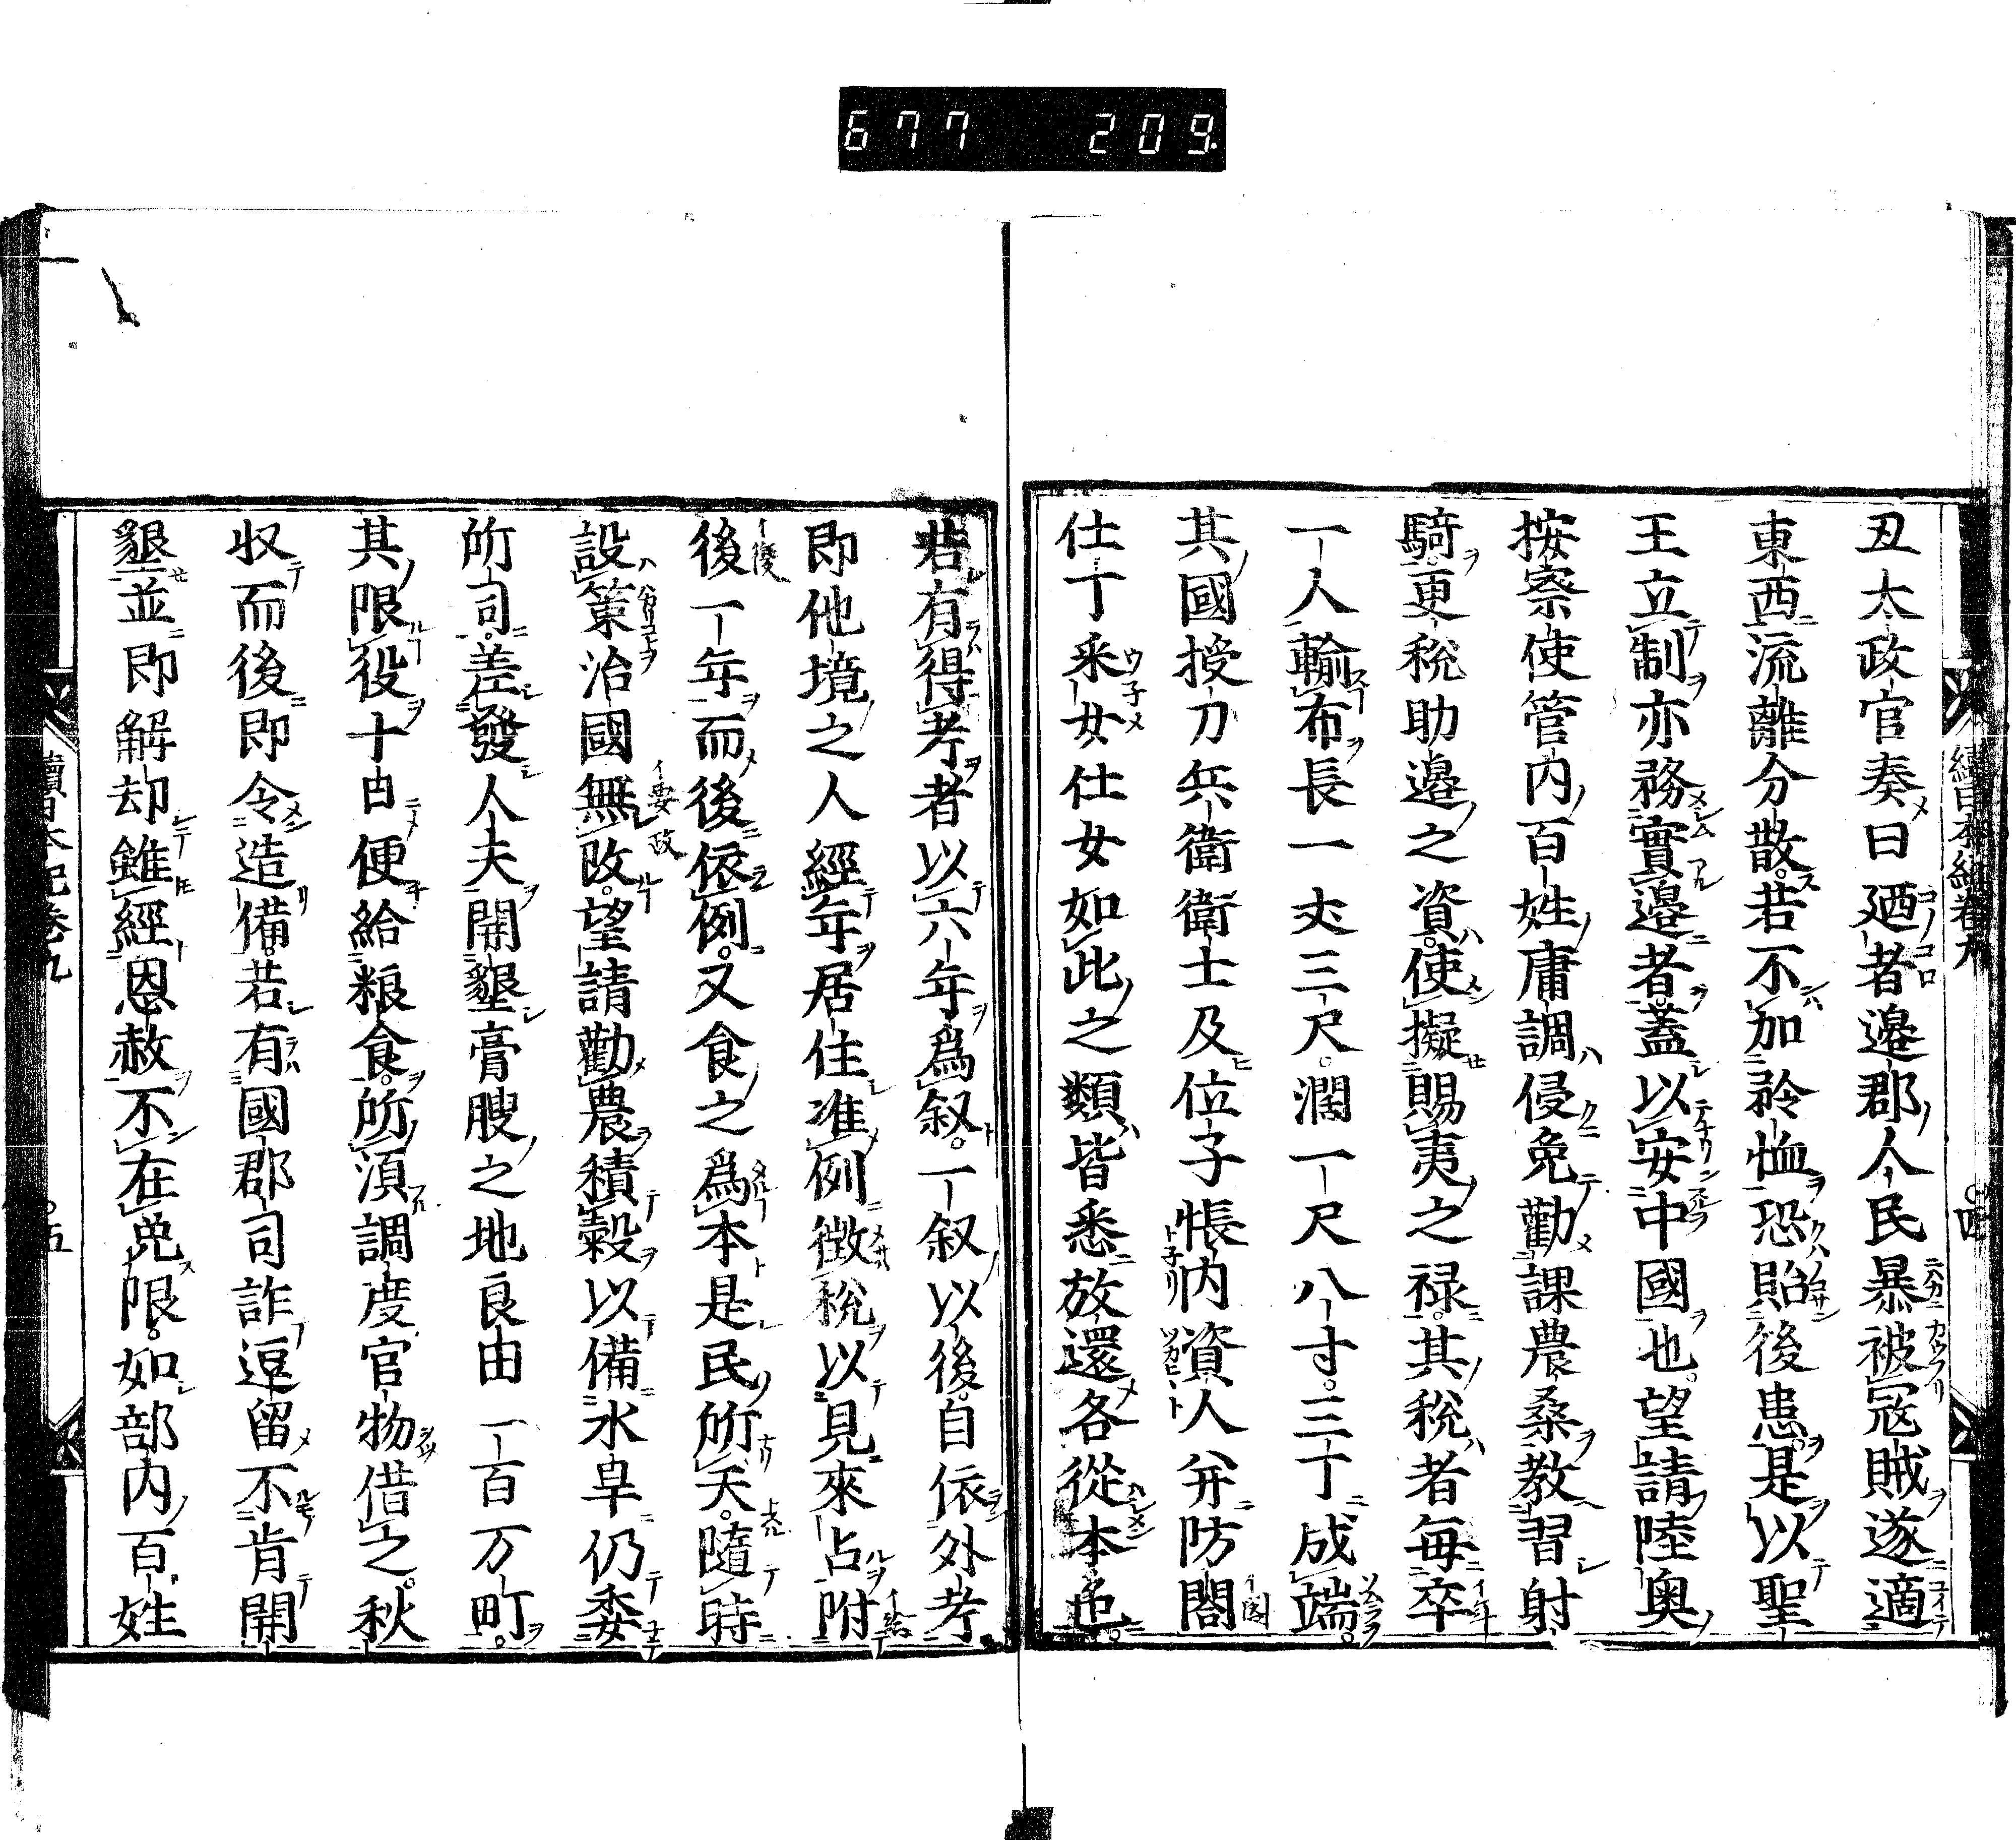 677 209
續日本紀卷九
四
丑太政官奏曰廼者邉郡人民暴被冦賊遂適
東西流離分散。若不加矜恤恐貽後患。是以聖
王立制亦務實邉者。蓋以安中國也。望請陸奥
按察使管内百姓庸調侵免勸課農桑教習射
騎。更税助邉之資。使擬賜夷之禄。其税者毎卒
一人輸布長一𠀋三尺。濶一尺八寸。三丁成端。
其國授刀兵衛衛士及位子帳内資人并防閤
仕丁釆女仕女如此之類皆悉放還各從本色。
若有得考者以六年爲叙。一叙以後。自依外考
即他境之人經年居住准例徴税以見來占附
後一年而後依例。又食之爲本是民所天。隨時
設策治國無改。望請勸農積穀以備水旱仍委
所司差發人夫開墾膏腴之地良田一百万町。
其限役十日便給粮食。所湏調度官物借之。秋
収而後即令造備。若有國郡司詐逗留不肯開
墾並即解却雖經恩赦不在免限。如部内百姓
續日本紀卷九
五